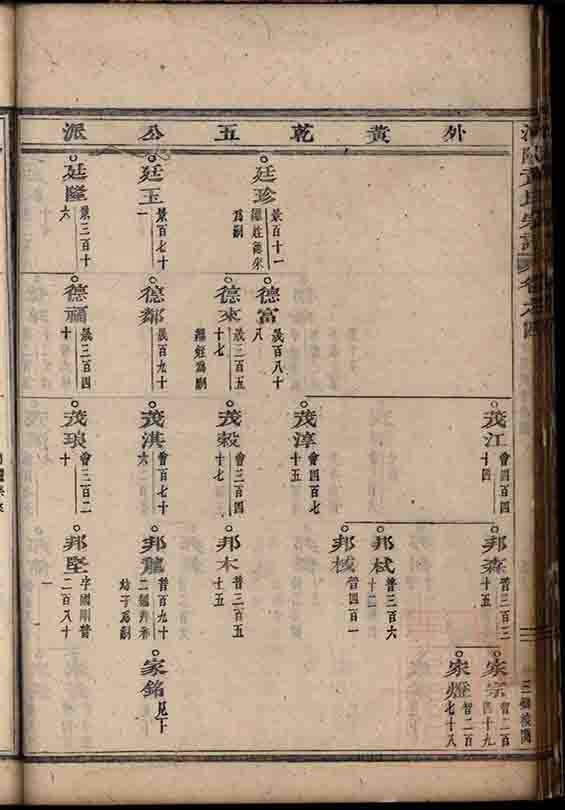 外黃乾五公派
廷珍
景百十一
繼姪德來
爲嗣
廷玉
景百七十
一
廷隆
景三百十
六
德富
晟百八十
八
德來
晟三百五
十七
繼姪爲嗣
德鄰
晟百九十
德福
晟三百四
十
茂江
會四百四
十四
茂淳
會四百七
十五
茂穀
會三百四
十七
茂淇
會百七十
六
茂琅
會三百二
十
邦森
普三百二
十五
邦栻
普三百六
十二
邦棫
普四百一
邦木
普三百五
十五
邦龍
普百九十
二繼邦本
幼子爲嗣
邦堅
字國剛普
二百八十
一
家宗
智二百
四十九
家燈
智二百
七十八
家銘
見下